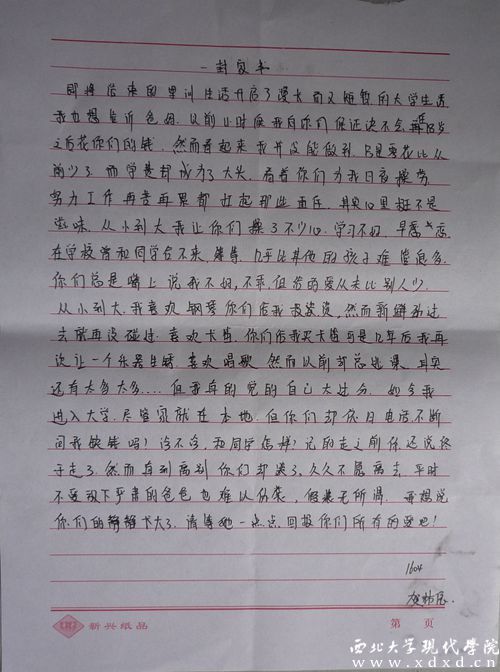 一封家书
即将结束的军训生活开启了漫长而又短暂的大学生活
我也想告诉爸妈,以前小时候我向你们保证决不会再18岁
之后花你们的钱。然而看起来我并没能做到,只是零花比从
前少了,而学费却成为了大头。看着你们为我日夜操劳,
努力工作再苦再累都扛起那些面庞,其实心里挺不是
滋味。从小到大我让你们操了不少心。学习不好,早恋,
在学校曾和同学合不来,等等,几乎比其他的孩子难管很多。
你们总是嘴上说我不好,不乖,但给的爱从未比别人少。
从小到大,我喜欢钢琴你们给我报资,然而新鲜劲过
去就再没碰过。喜欢卡笛,你们给我买卡笛可是几年后我再
次让一个乐器生锈,喜欢唱歌,然而以前却总逃课,其实
还有太多太多....但我真的觉的自己太过分,如今我
进入大学,尽管家就在本地,但你们却依旧电话不断
问我缺钱吗?冷不冷,和同学怎样?记的走之前你还说终
于走了,然而真到离别你们却哭了,久久不愿离去,平时
不要放下严肃的爸爸也难以伪装,假装无所谓,再想说
你们的 太大了,请等她一点点回报你们所有的爱吧!
1604
新兴纸品
第 页
西北大学现代学院
www.xdxd.cn